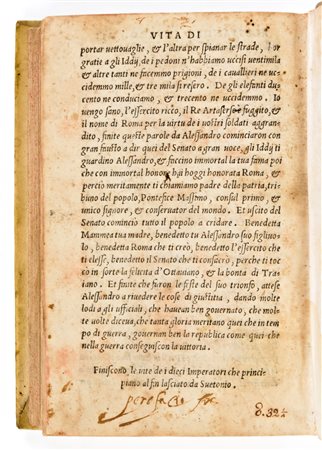 VITA DI
portar vettouaglie, & l'altra per spianar le strade, hor
gratie a gli Iddij, de i pedoni n'habbiamo uccisi uentimila
& altre tanti ne facemmo prigioni, de i cauallieri ne uc-
cidemmo mille, & tre mila si resero. De gli elefanti du-
cento ne conduciamo, & trecento ne uccidemmo. Io
uengo sano, l'essercito ricco, il Re Artasirse fuggito, &
il nome di Roma per la uirtu de i uostri soldati aggran-
dito, finite queste parole da Alessandro cominciaron con
gran fausto a dir quei del Senato a gran uoce, gli Iddij ti
guardino Alessandro, & faccino immortal la tua fama poi
che con immortal honor hai hoggi honorata Roma, &
perciò meritamente ti chiamiamo padre della patria, tri-
buno del popolo, Pontefice Massimo, consul primo, &
unico signore, & conseruator del mondo. Et uscito del
Senato comincio tutto il popolo a cridare. Benedetta
Mammea tua madre, benedetto tu Alessandro suo figliuo-
lo, benedetta Roma che ti creò, benedetto l'essercito che
ti elesse, benedetto il Senato che ti consacrò, perche ti toc
cò in sorte la felicita d'Ottauiano, & la bontà di Tra-
iano. Et finite che furon le feste del suo trionfo, attese
Alessandro a riuedere le cose di giustitia, dando molte
lodi a gli ufficiali, che hauean ben gouernato, che mol-
te uolte diceua, che tanta gloria meritano quei che in tem-
po di guerra, gouernan ben la republica come quei che
nella guerra conseguiscon la uittoria.
Finiscono le uite de i dieci Imperatori che princi-
piano al fin lasciato da Suetonio.